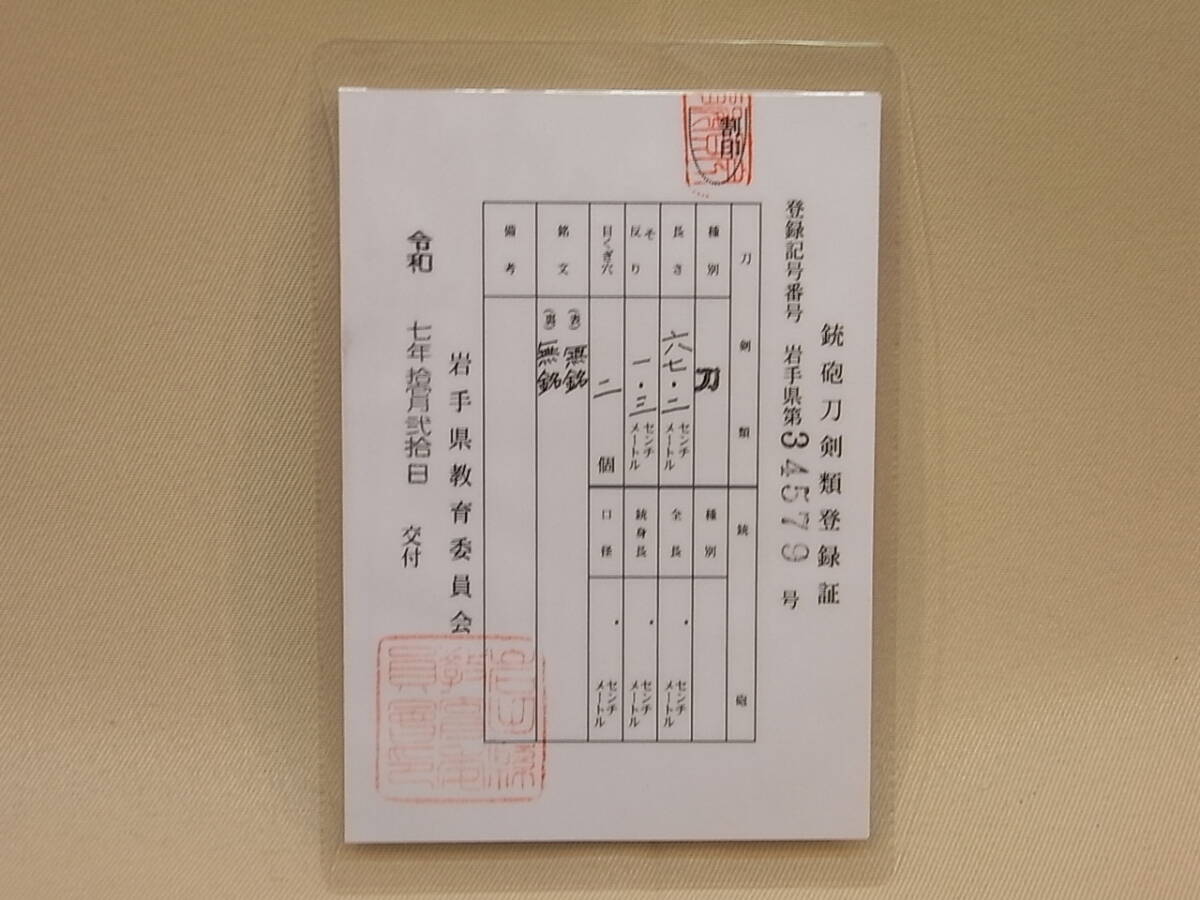 割印
銃砲刀剣類登録証
登録記号番号 岩手県第34579号
刀剣類
銃砲
種別 刀
種別
長さ 六七・二 センチメートル
全長 ・ センチメートル
そり 反り 一・三 センチメートル
銃身長 ・ センチメートル
目くぎ穴 二 個
口径 ・ センチメートル
銘文 (表) 無銘
(裏) 無銘
備考
岩手県教育委員会
令和 七年拾壱月弐拾日 交付